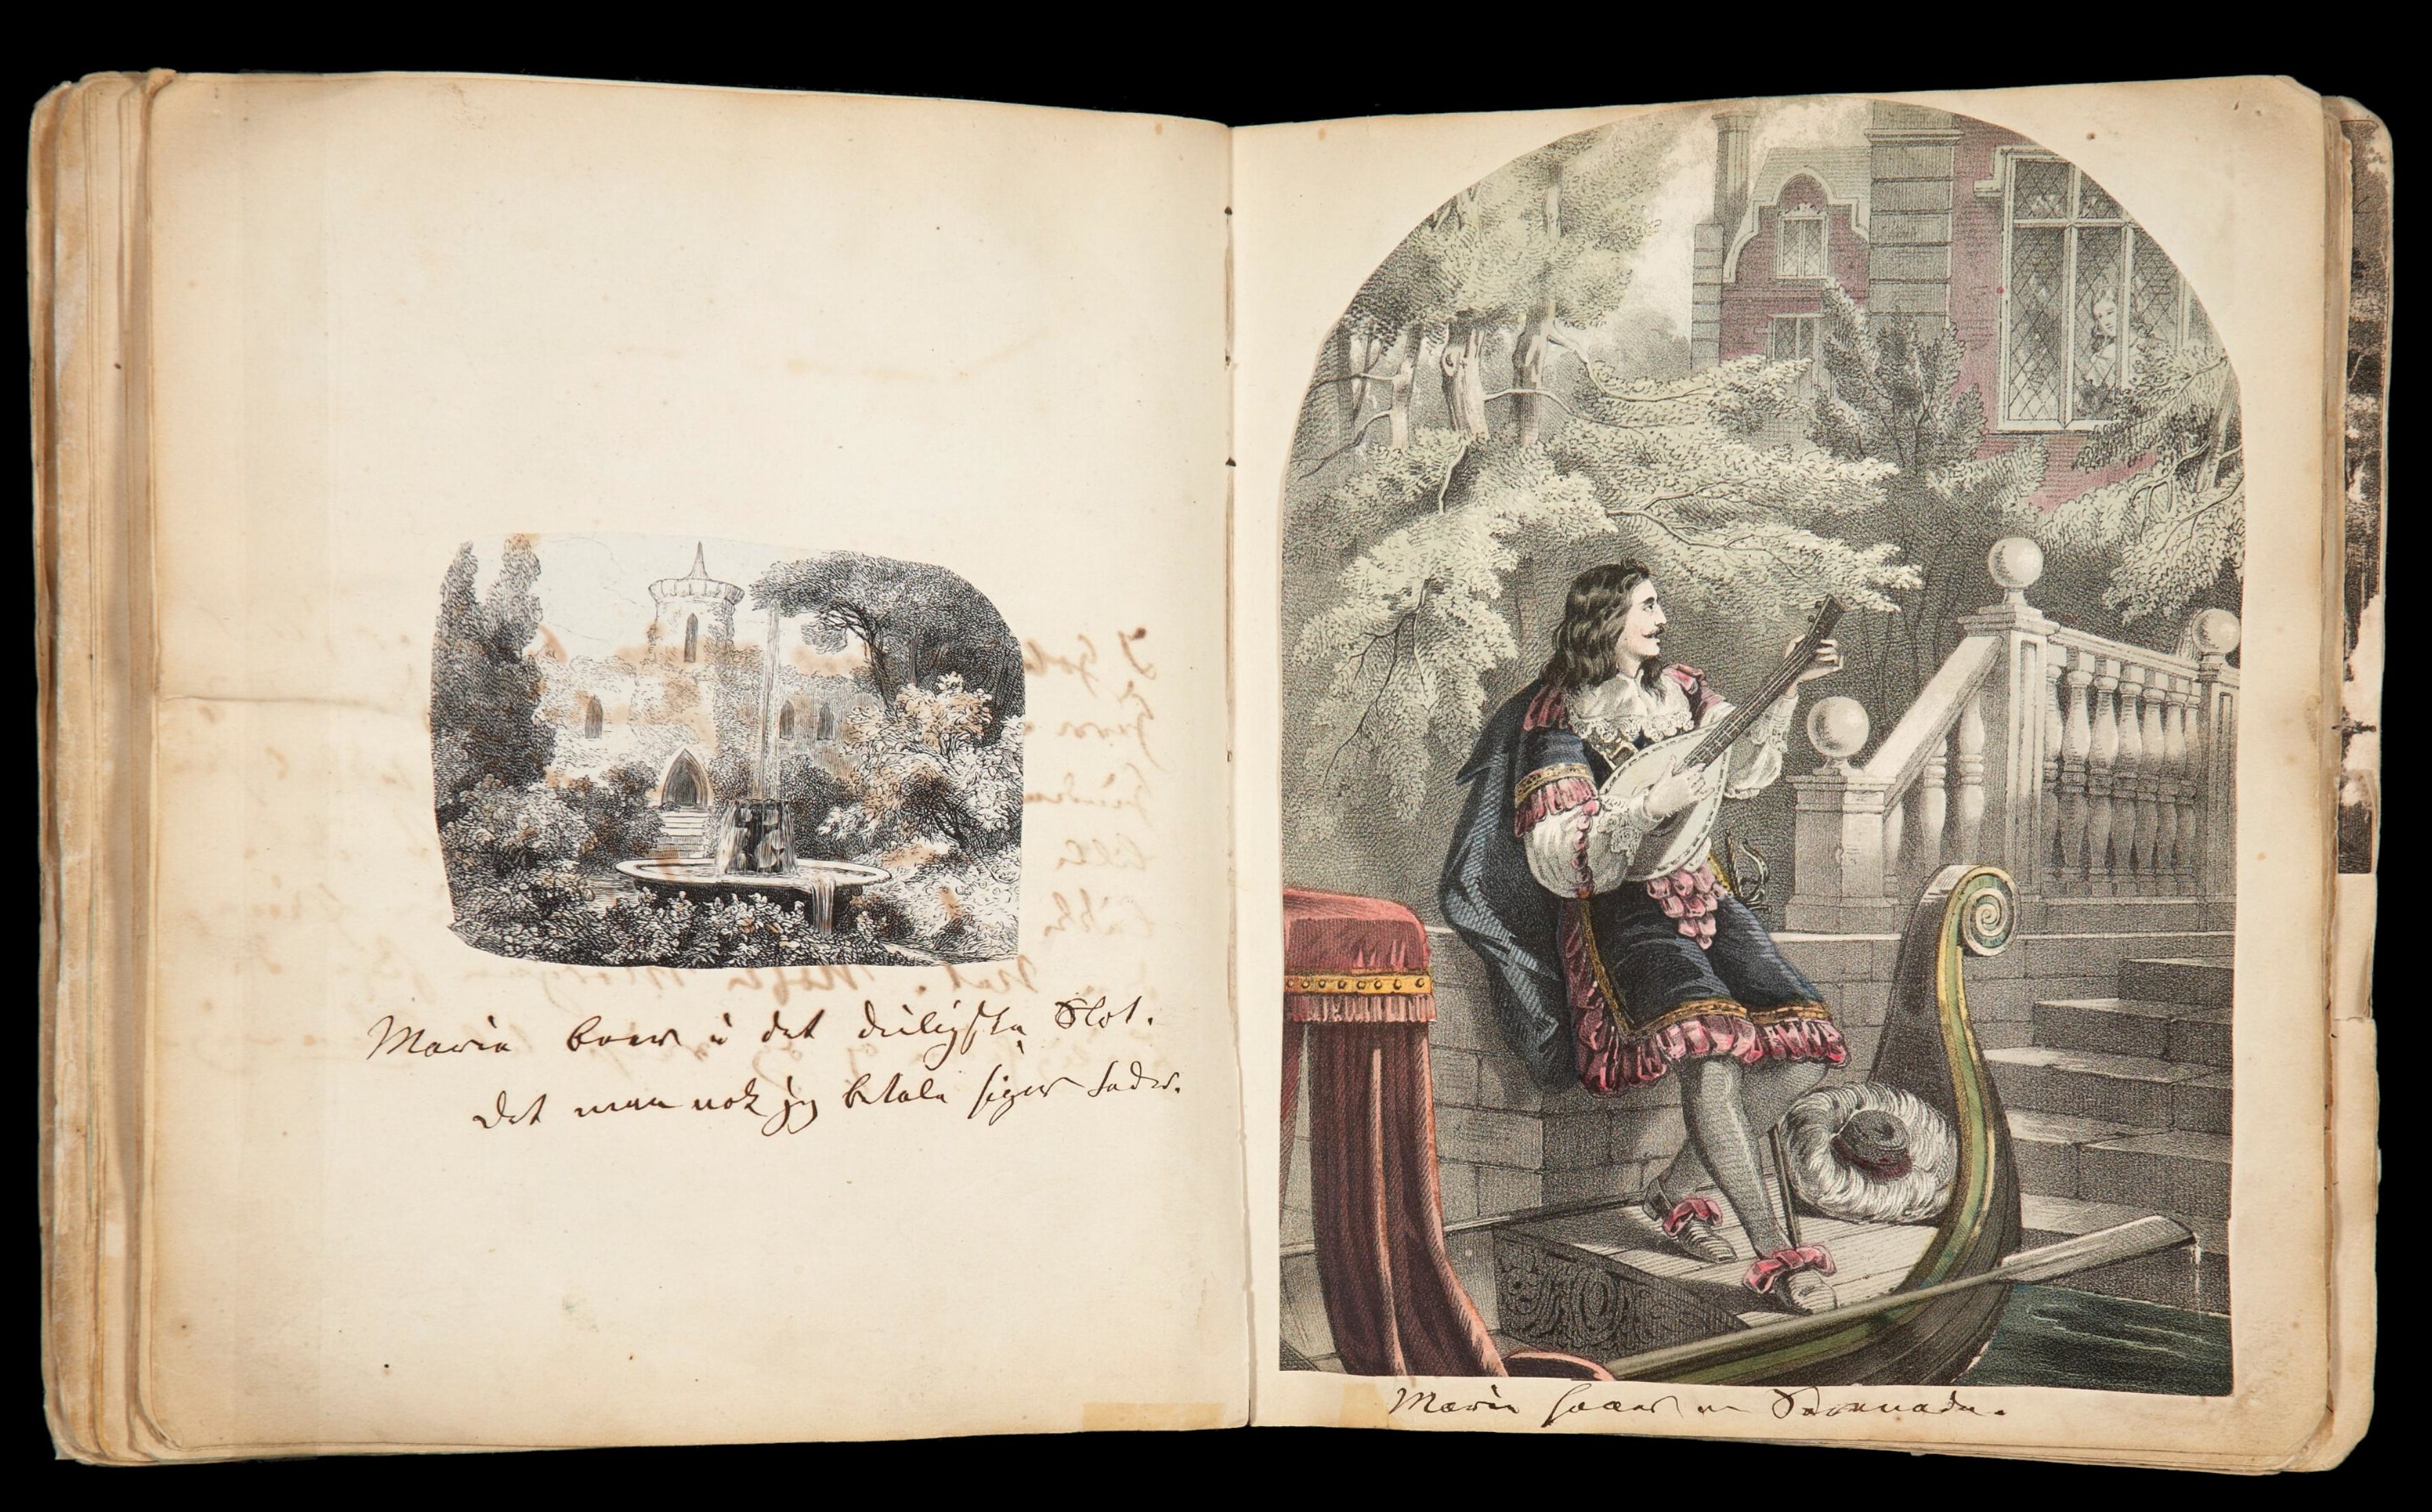 Marie boer i det deiligste Slot.
det man nok jeg betale siger Fader.
Marie faaer en Serenade.